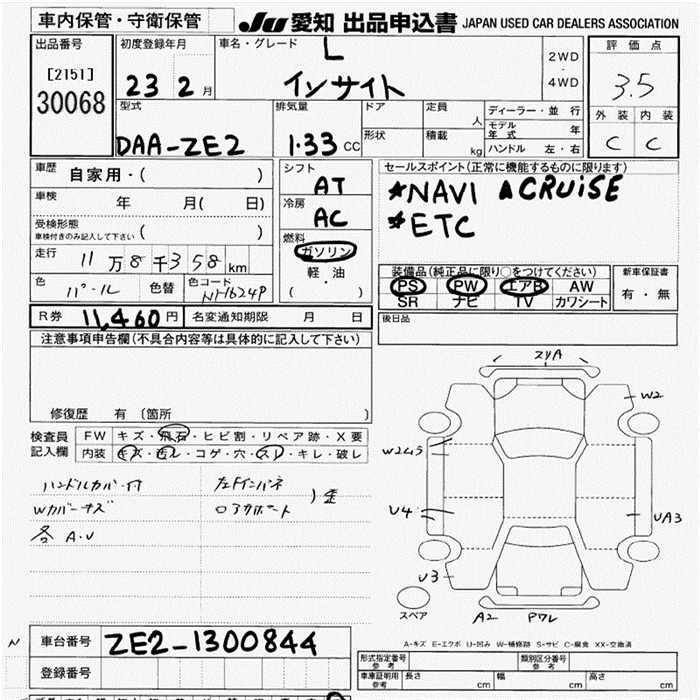 車内保管・守衛保管 JU 愛知 出品申込書 JAPAN USED CAR DEALERS ASSOCIATION
出品番号 初度登録年月 車名・グレード L 評価点
[2151] 2WD
30068 23 2月 インサイト 4WD 3.5
型式 排気量 ドア 定員 人 ディーラー・並行 外装 内装
DAA-ZE2 1.33 CC 形状 積載 kg モデル年式 年 C C
ハンドル 左・右
車歴 自家用・( ) シフト AT セールスポイント(正常に機能するものに限ります)
車検 年 月( 日) 冷房 AC ★NAVI ▲CRUISE
受検形態 ★ETC
車検付きのみ記入して下さい ( ) 燃料 ガソリン
走行 11万8千358km 軽・油 装備品(純正品に限り○をつけてください) 新車保証書
色 パール 色替 色コード NH624P ( ) PS PW エアB AW 有・無
SR ナビ TV カワシート
R券 11,460円 名変通知期限 月 日 後日品
注意事項申告欄(不具合内容等は具体的に記入して下さい)
修復歴 有 (箇所 )
検査員 FW キズ・飛石・ヒビ割・リペア跡・X要
記入欄 内装 キズ・汚レ・コゲ・穴・スレ・キレ・破レ
ハンドルカバー付
Wカバーキズ
各 A.U
)歪
2ツA
W2
W2ムラ
U4
UA3
U3
スペア A2 Pワレ
A-キズ E-エクボ U-凹み W-補修跡 S-サビ C-腐食 XX-交換済
N 車台番号 ZE2-1300844
登録番号
形式指定番号 参考 類別区分番号 参考
車庫証明用 参考 長さ cm 幅 cm 高さ cm